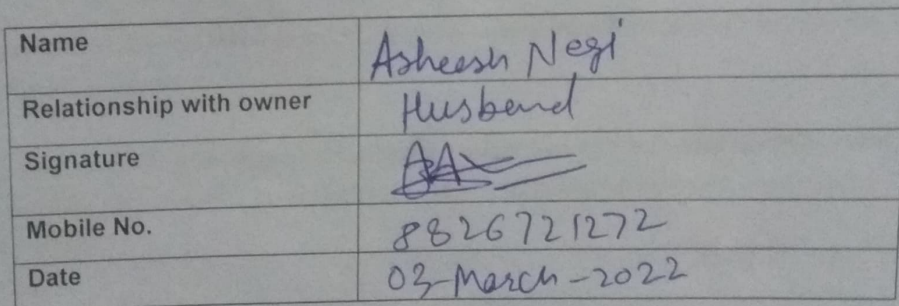 Name Asheesh Negi
Relationship with owner Husband
Signature
Mobile No. 8826721272
Date 03-March-2022